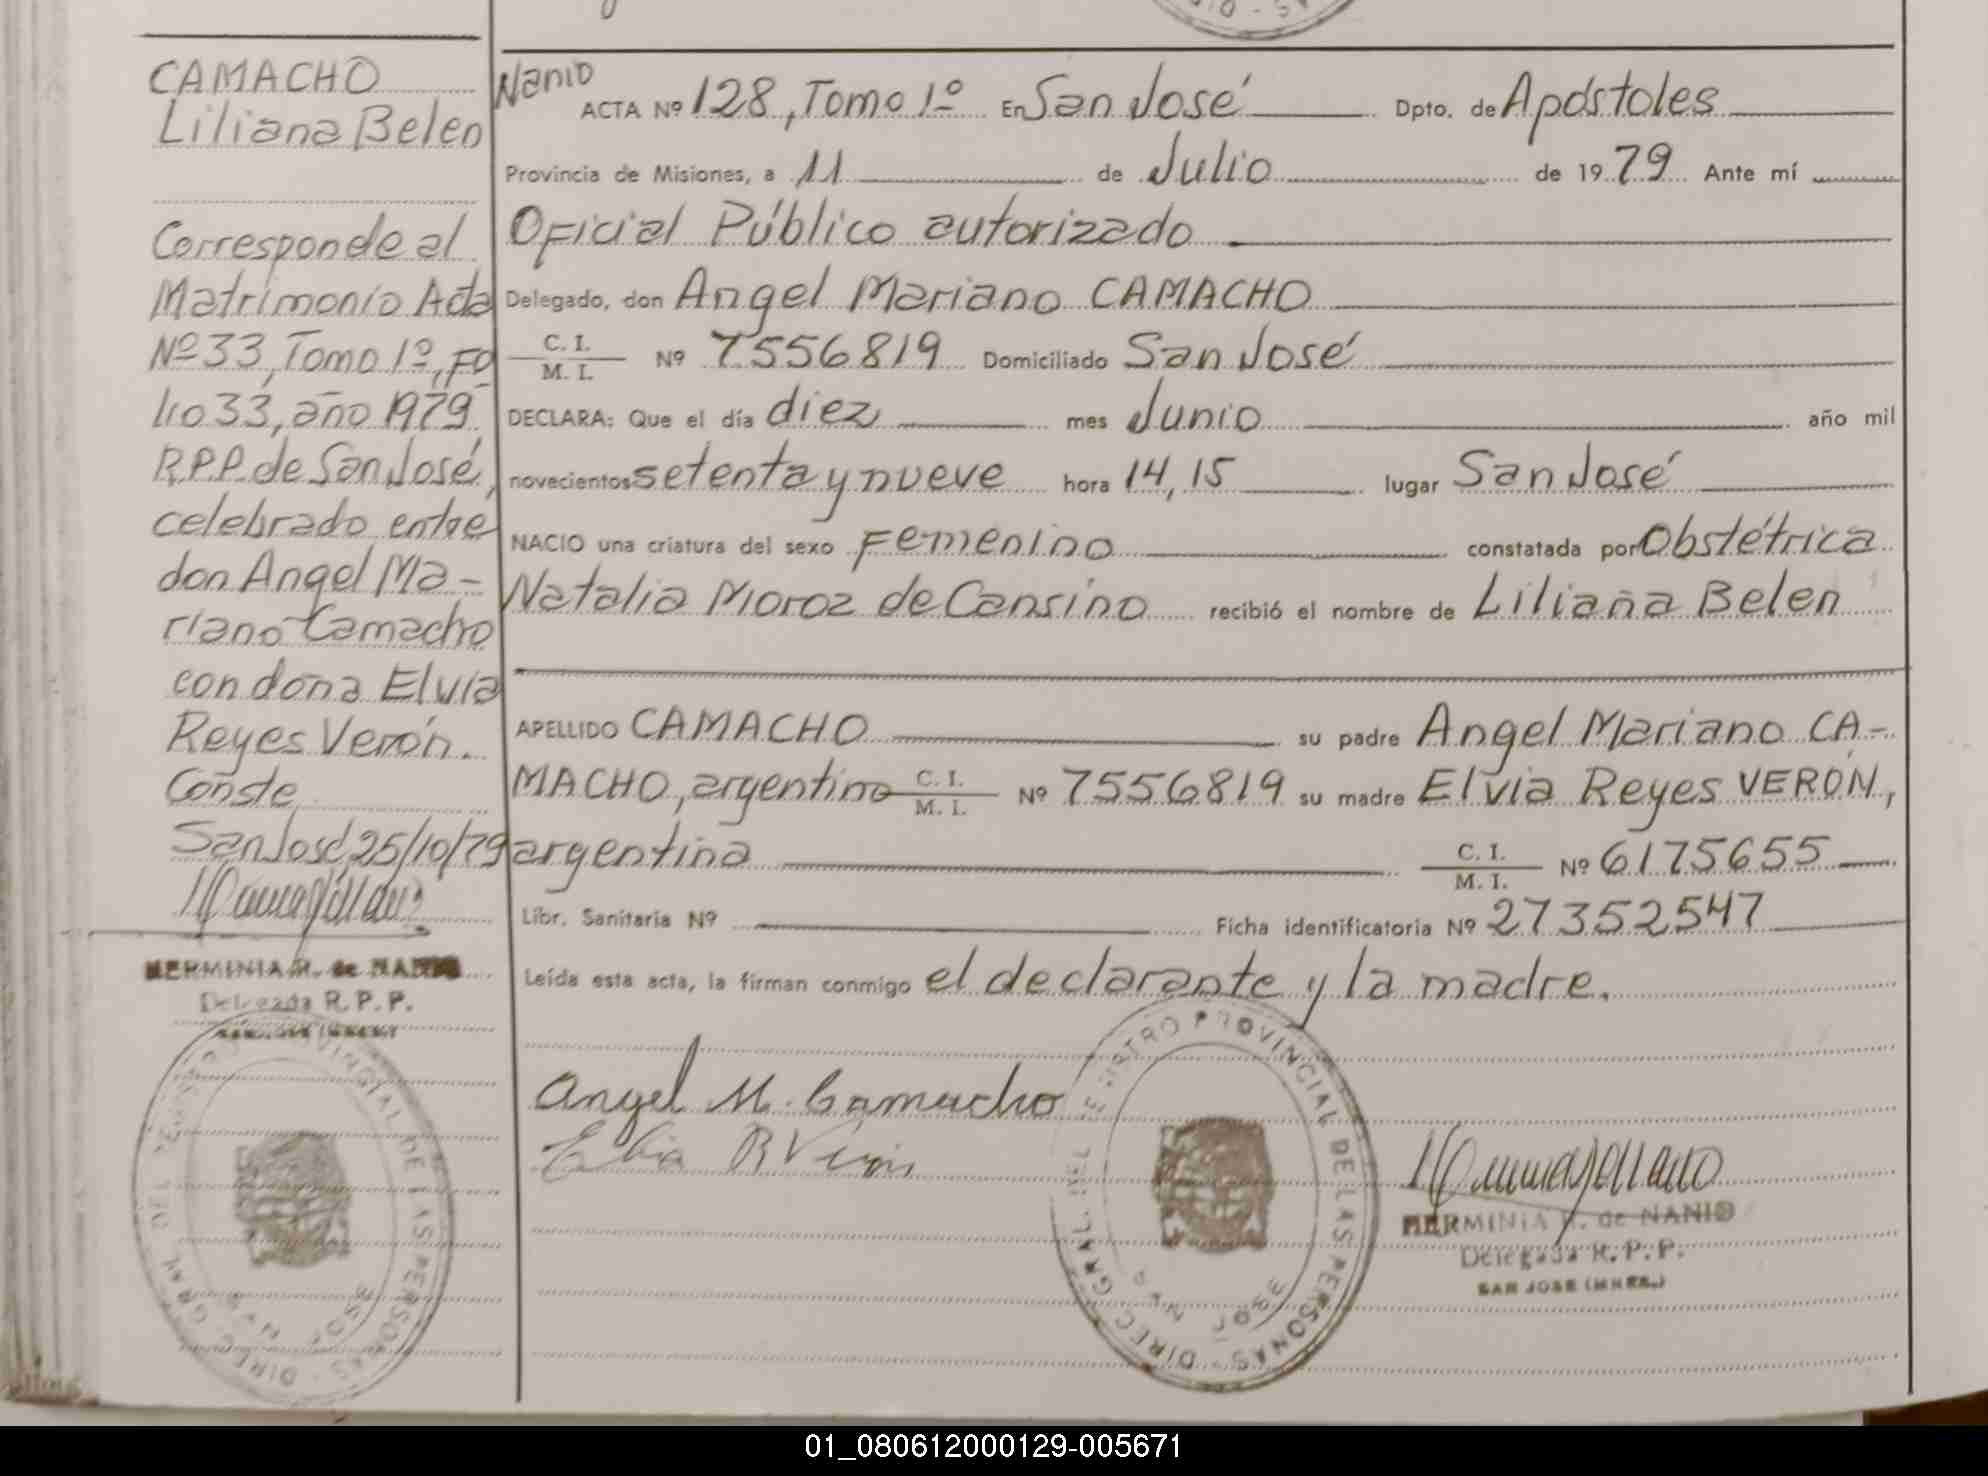 CAMACHO
Liliana Belen
Corresponde al
Matrimonio Acta
Nº 33, Tomo 1º, Fo
lio 33, año 1979
R.P.P. de San José,
celebrado entre
don Angel Ma-
riano Camacho
con doña Elvia
Reyes Verón.
Conste
San José, 25/10/79
HERMINIA R. de NANIO
Delegada R. P. P.
Nanio
ACTA Nº 128, Tomo 1º En San José Dpto. de Apóstoles
Provincia de Misiones, a 11 de Julio de 1979 Ante mí
Oficial Público autorizado
Delegado, don Angel Mariano CAMACHO
C. I.
M. I. Nº 7556819 Domiciliado San José
DECLARA: Que el día diez mes Junio año mil
novecientos setenta y nueve hora 14,15 lugar San José
NACIO una criatura del sexo Femenino constatada por Obstétrica
Natalia Moroz de Cansino recibió el nombre de Liliana Belen
APELLIDO CAMACHO su padre Angel Mariano CA-
MACHO, argentino C. I. M. I. Nº 7556819 su madre Elvia Reyes VERÓN,
argentina C. I. M. I. Nº 6175655
Libr. Sanitaria Nº Ficha identificatoria Nº 27352547
Leída esta acta, la firman conmigo el declarante y la madre.
Angel M. Camacho
HERMINIA R. de NANIO
Delegada R. P. P.
SAN JOSE (MNES.)
REGISTRO PROVINCIAL DE LAS PERSONAS - DIREC. GRAL. DEL
SAN JOSE
01_080612000129-005671